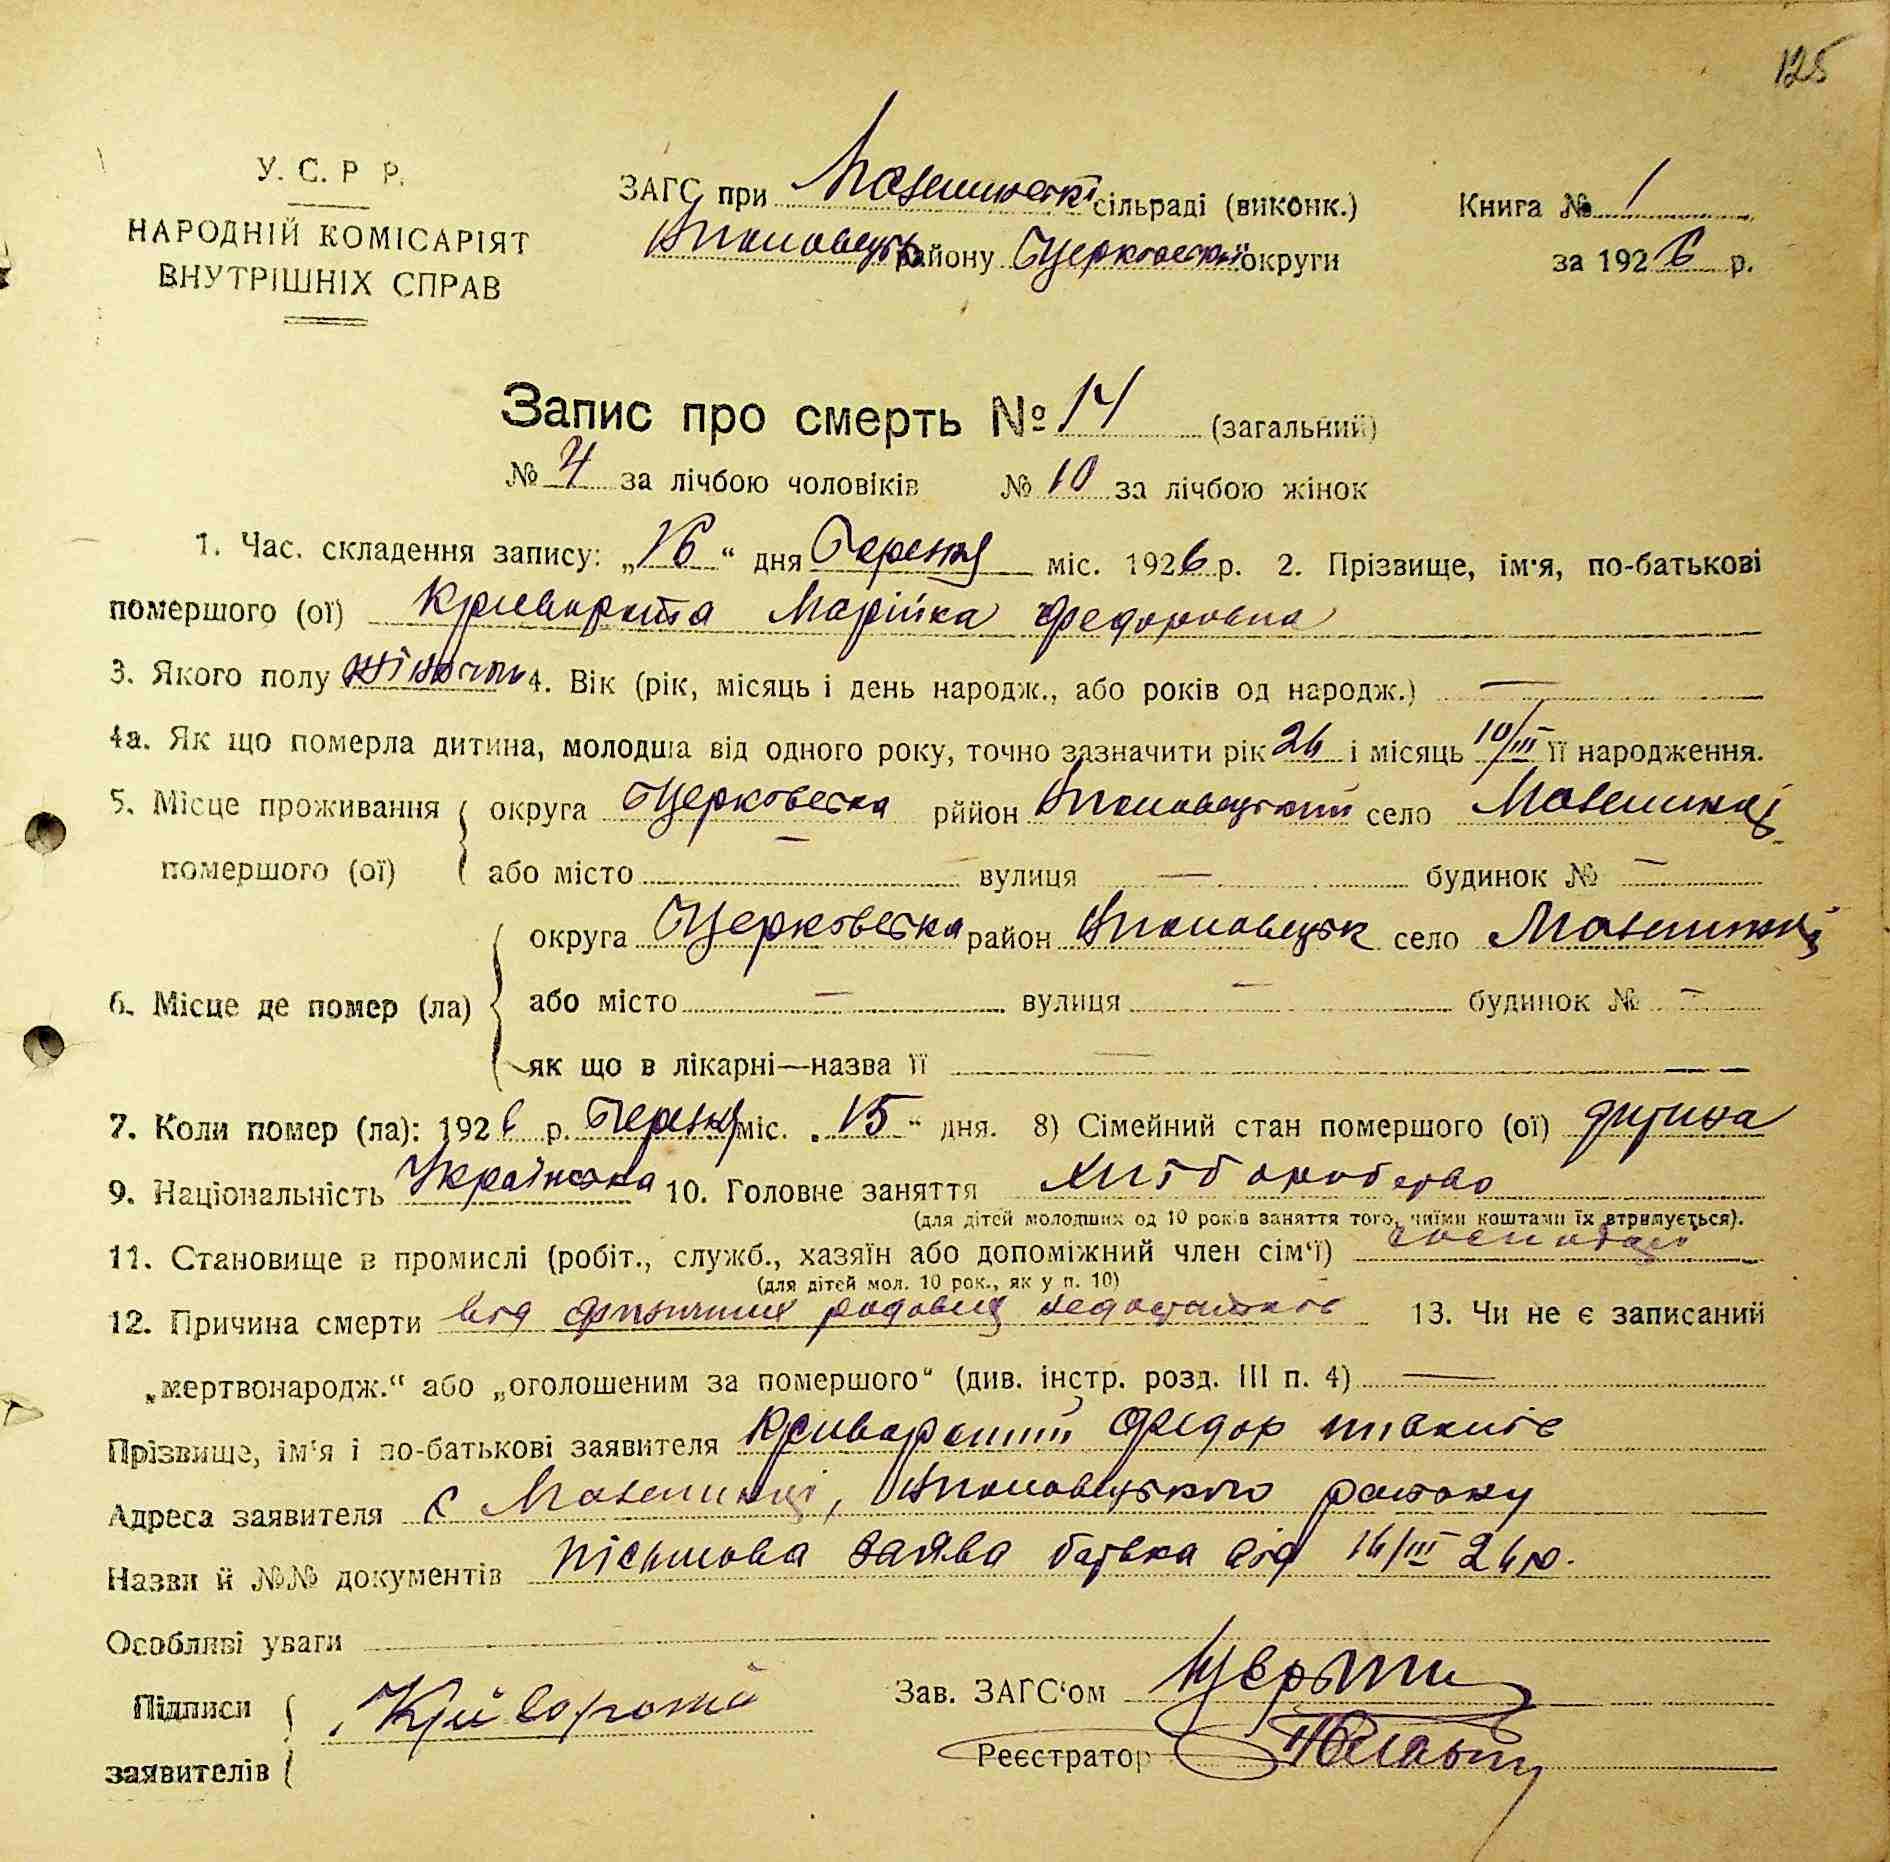 125
У. С. Р Р.
НАРОДНІЙ КОМІСАРІЯТ
ВНУТРІШНІХ СПРАВ
ЗАГС при сільраді (виконк.)
району округи
Книга № 1
за 1926 р.
Запис про смерть № 14 (загальний)
№ 4 за лічбою чоловіків № 10 за лічбою жінок
1. Час. складення запису: „16“ дня Березня міс. 1926 р. 2. Прізвище, ім'я, по-батькові
помершого (ої) Криворота Марійка Федоровна
3. Якого полу жіночого 4. Вік (рік, місяць і день народж., або років од народж.) —
4а. Як що померла дитина, молодша від одного року, точно зазначити рік 26 і місяць 10/III її народження.
5. Місце проживання округа Церковська рийон село Мазепинці
помершого (ої) або місто — вулиця — будинок № —
округа Церковська район село Мазепинці
6. Місце де помер (ла) або місто — вулиця — будинок № —
як що в лікарні—назва її —
7. Коли помер (ла): 1926 р. Березня міс. „15“ дня. 8) Сімейний стан помершого (ої) дитина
9. Національність Українська 10. Головне заняття хліборобство
(для дітей молодших од 10 років заняття того, чиїми коштами їх втримується).
11. Становище в промислі (робіт., служб., хазяїн або допоміжний член сім'ї)
(для дітей мол. 10 рок., як у п. 10)
12. Причина смерти від физичних родових недостатків 13. Чи не є записаний
„мертвонародж.“ або „оголошеним за помершого“ (див. інстр. розд. III п. 4) —
Прізвище, ім'я і по-батькові заявителя Криворотий Федор
Адреса заявителя с Мазепинці, району
Назви й №№ документів письмова заява батька від 16/III 26 р.
Особливі уваги
Підписи Криворотий
заявителів
Зав. ЗАГС'ом
Реєстратор